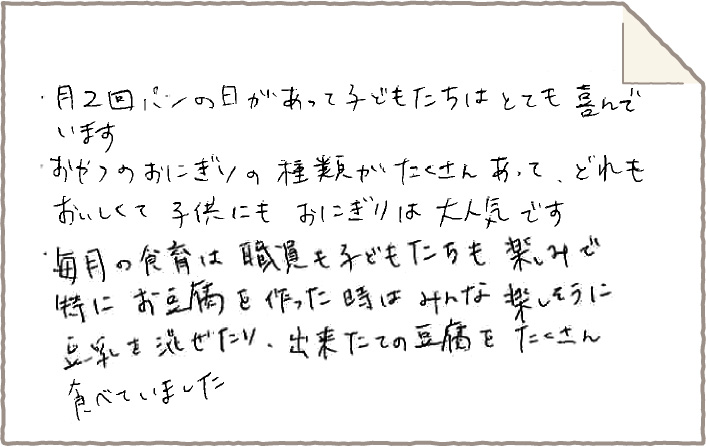 ・月2回パンの日があって子どもたちはとても喜んで
います
・おやつのおにぎりの種類がたくさんあって、どれも
おいしくて子供にもおにぎりは大人気です
・毎月の食育は職員も子どもたちも楽しみで
特にお豆腐を作った時はみんな楽しそうに
豆乳を混ぜたり、出来たての豆腐をたくさん
食べていました